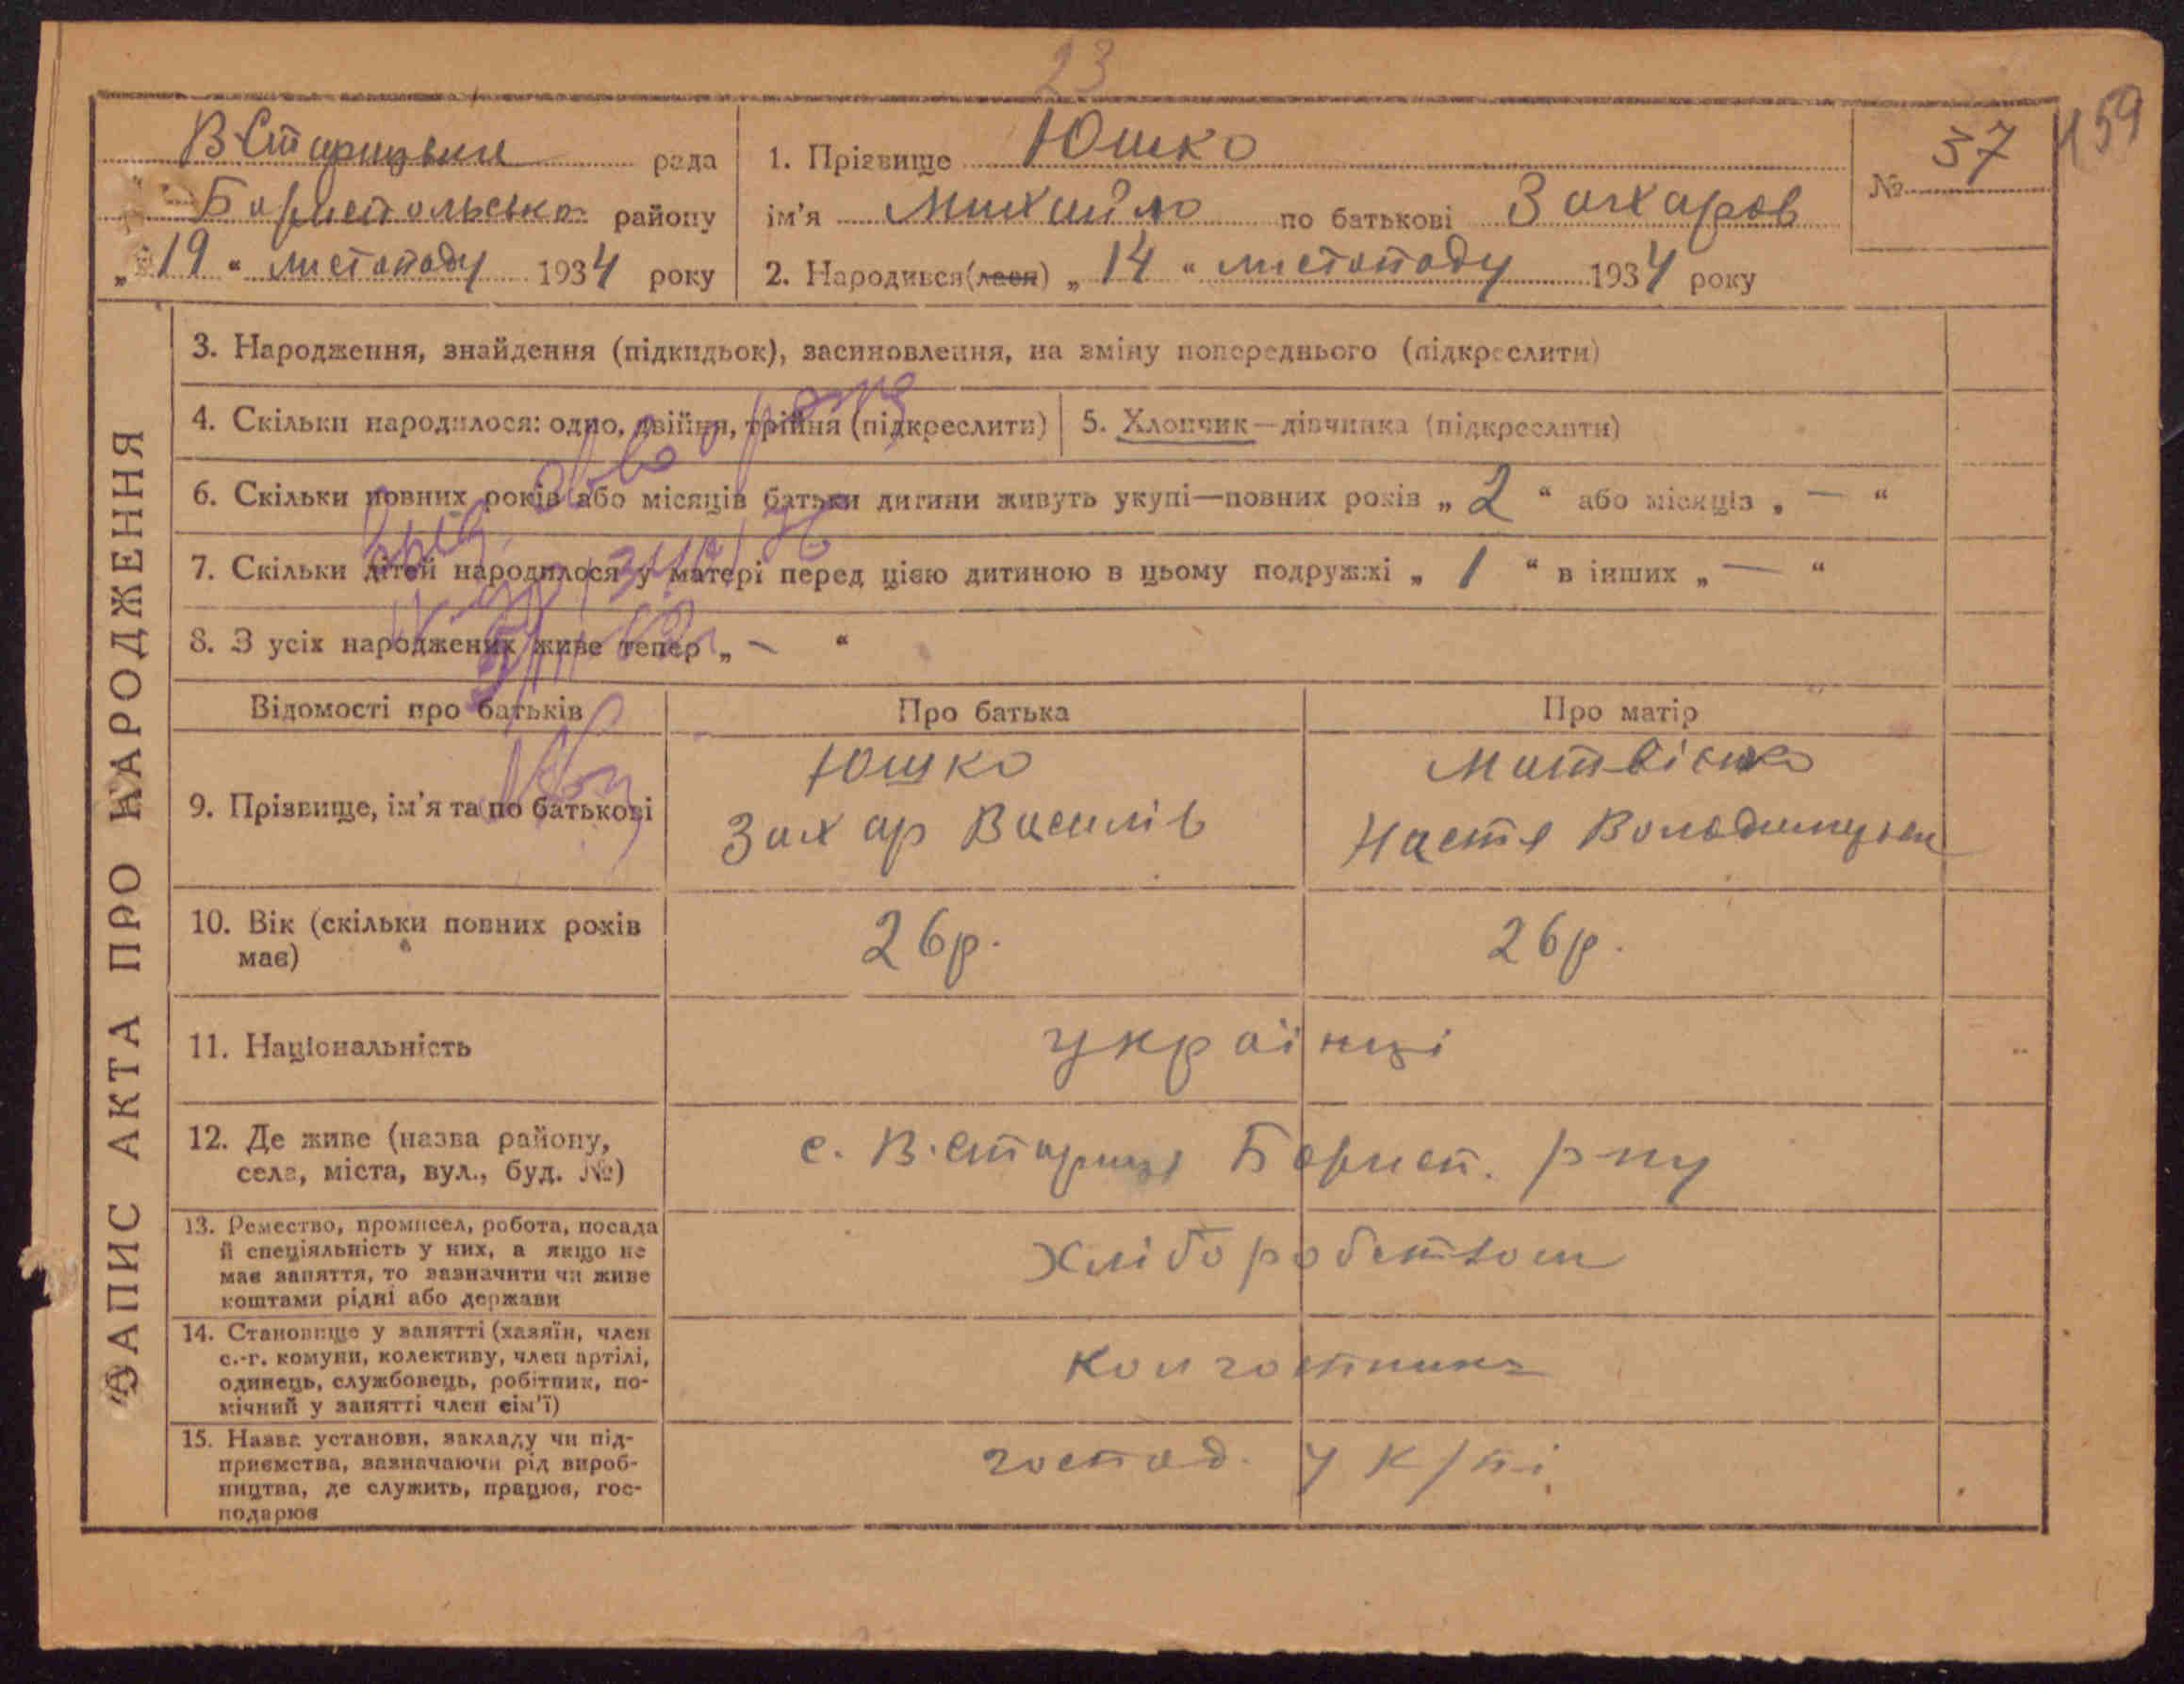 23
В-Старицька рада
Бориспольсько району
„19“ листопаду 1934 року
1. Прізвище Юшко
ім'я Михайло по батькові Захаров
2. Народився(лася) „14“ листопаду 1934 року
№ 37
159
ЗАПИС АКТА ПРО НАРОДЖЕННЯ
3. Народження, знайдення (підкидьок), засиновлення, на зміну попереднього (підкреслити)
4. Скільки народилося: одно, двійня, трійня (підкреслити)
5. Хлопчик—дівчинка (підкреслити)
6. Скільки повних років або місяців батьки дитини живуть укупі—повних років „2“ або місяців „—“
7. Скільки дітей народилося у матері перед цією дитиною в цьому подружжі „1“ в інших „—“
8. З усіх народжених живе тепер „-“
Відомості про батьків
Про батька
Про матір
9. Прізвище, ім'я та по батькові
Юшко
Захар Василів
Матвієнко
Настя
10. Вік (скільки повних років
має)
26р.
26р.
11. Національність
українці
12. Де живе (назва району,
села, міста, вул., буд. №)
с. В.Стариця Борисп. р-ну
13. Ремество, промисел, робота, посада
й спеціяльність у них, а якщо не
має заняття, то зазначити чи живе
коштами рідні або держави
Хліборобством
14. Становище у занятті (хазяїн, член
с.-г. комуни, колективу, член артілі,
одинець, службовець, робітник, по-
мічний у занятті член сім'ї)
15. Назва установи, закладу чи під-
приємства, зазначаючи рід вироб-
ництва, де служить, працює, гос-
подарює
господ. у к/пі